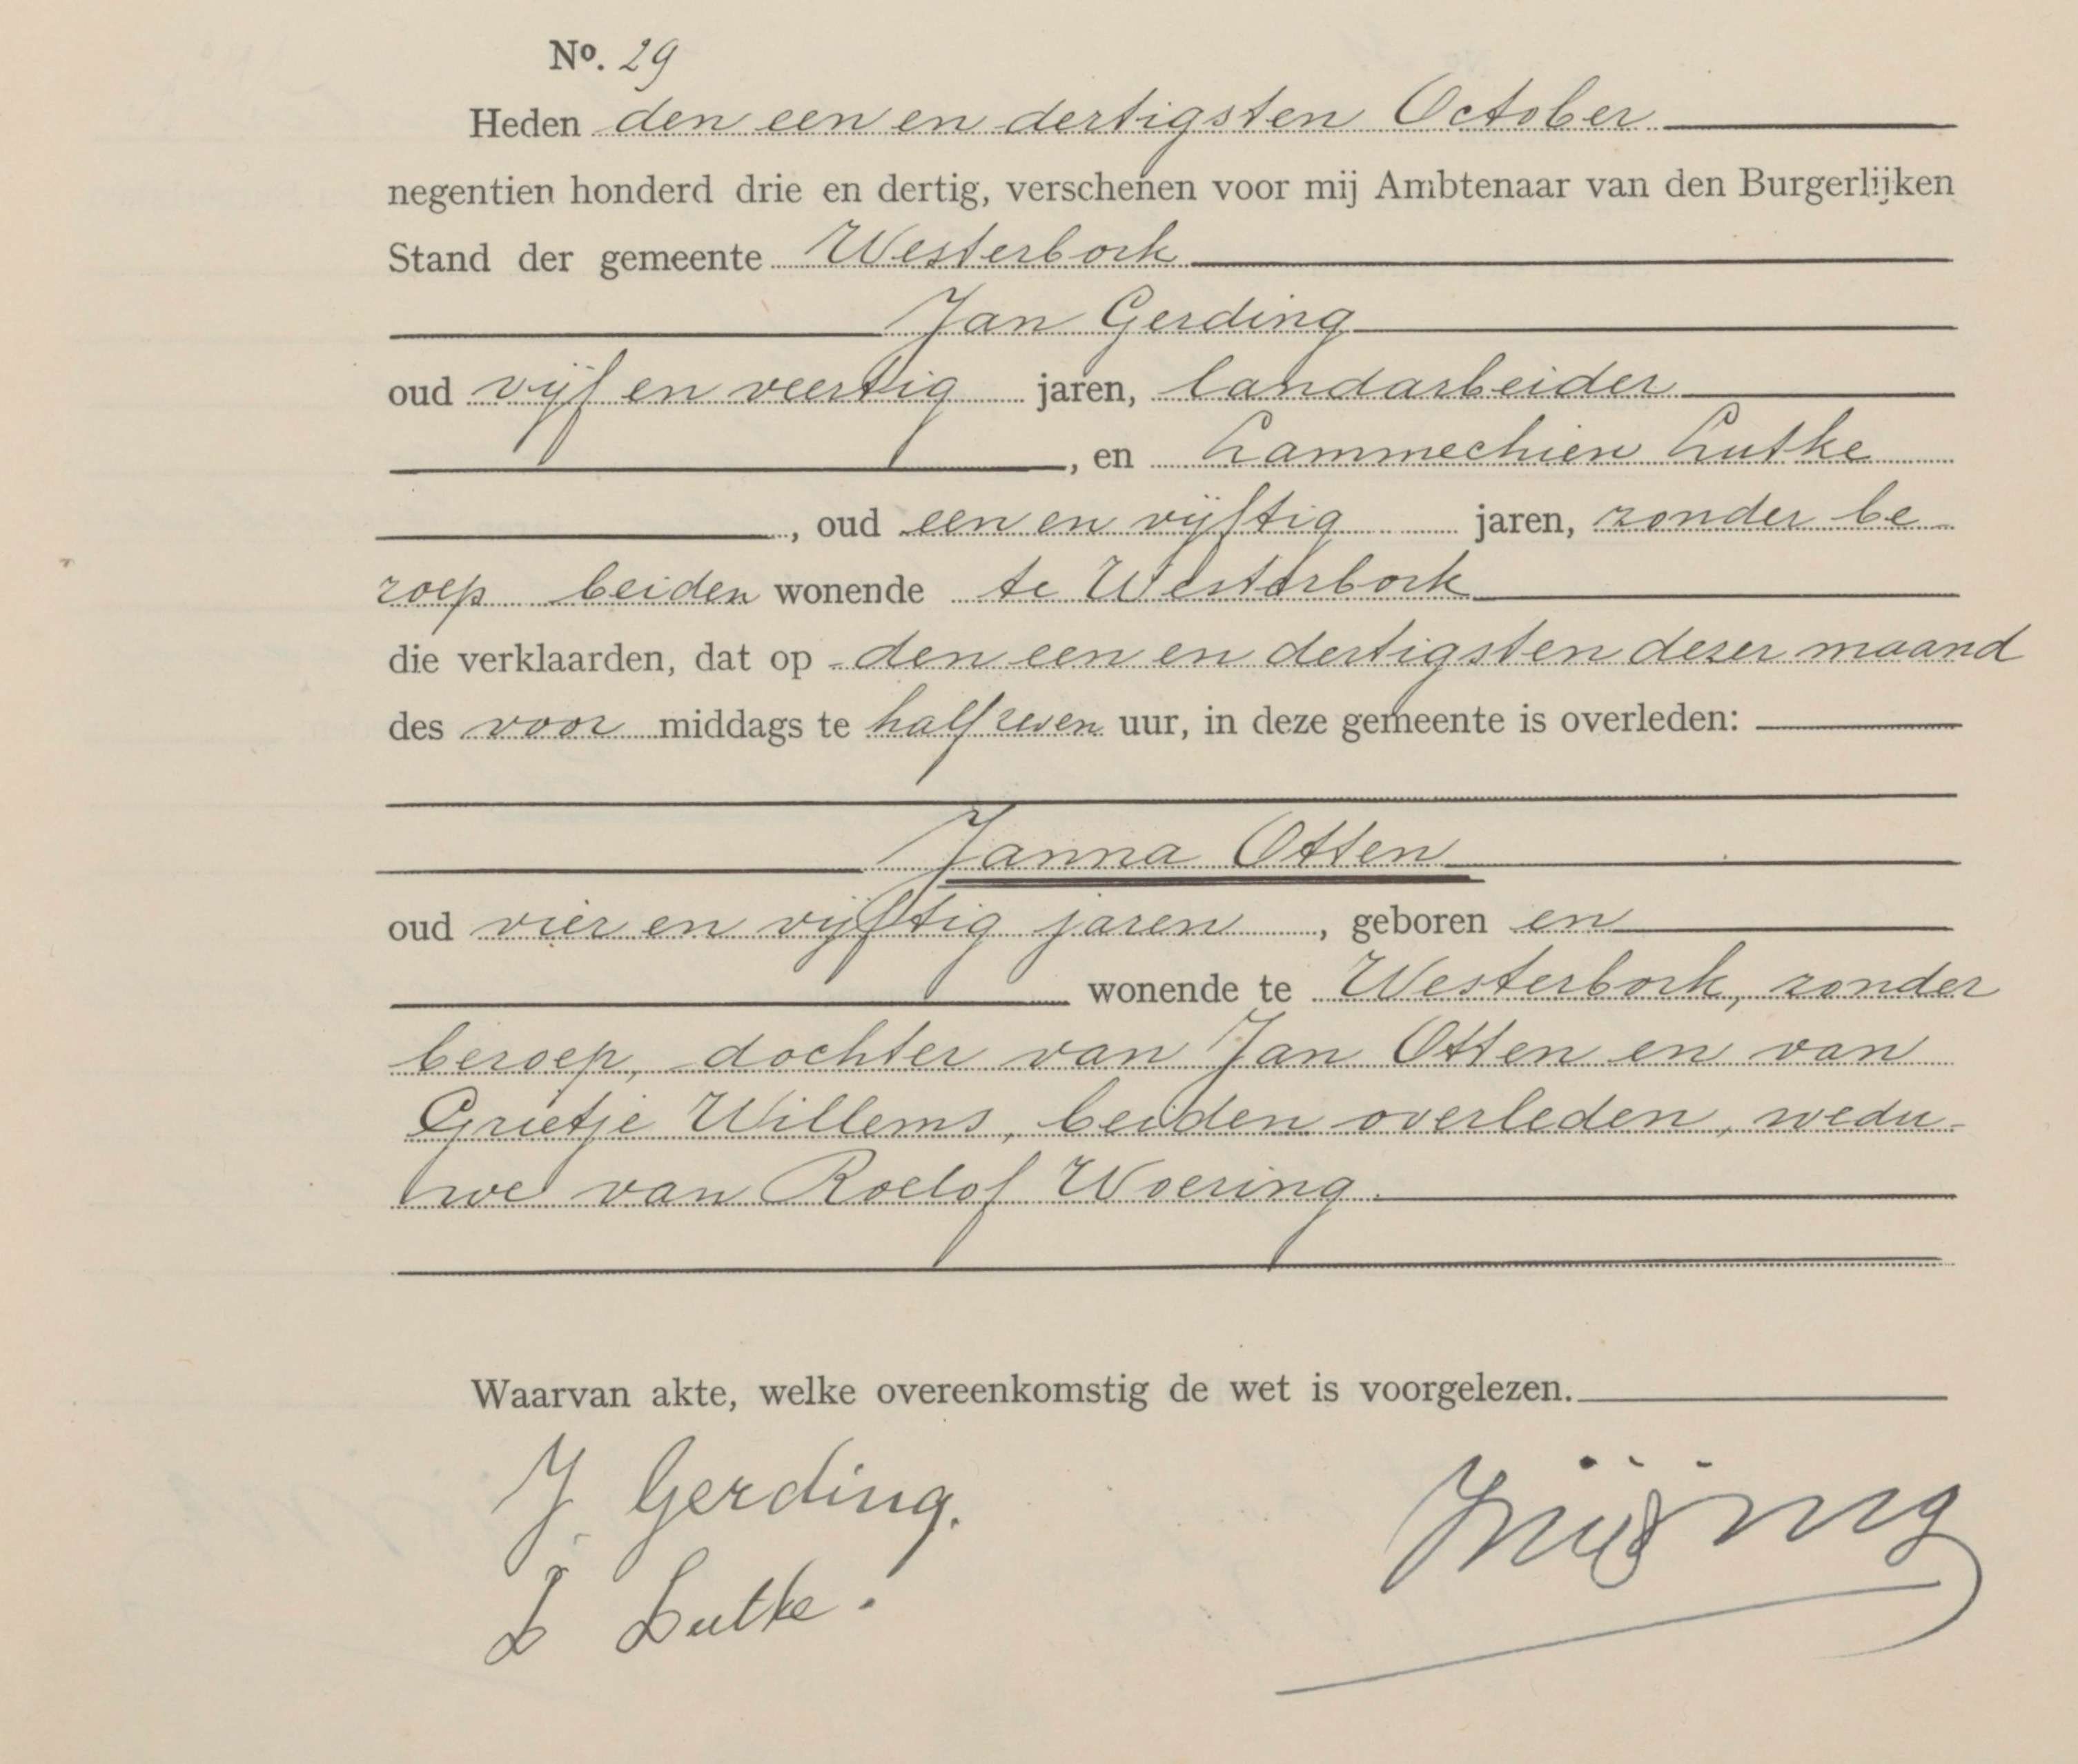 No. 29
Heden den een en dertigsten October
negentien honderd drie en dertig, verschenen voor mij Ambtenaar van den Burgerlijken
Stand der gemeente Westerbork
Jan Gerding
oud vijf en veertig jaren, landarbeider
, en Lammechien Lutke
, oud een en vijftig jaren, zonder be
roep beiden wonende te Westerbork
die verklaarden, dat op den een en dertigsten dezer maand
des voor middags te half zeven uur, in deze gemeente is overleden:
Janna Otten
oud vier en vijftig jaren, geboren en
wonende te Westerbork, zonder
beroep, dochter van Jan Otten en van
Grietje Willems, beiden overleden, wedu-
we van Roelof Woering.
Waarvan akte, welke overeenkomstig de wet is voorgelezen.
J. Gerding.
L Lutke.